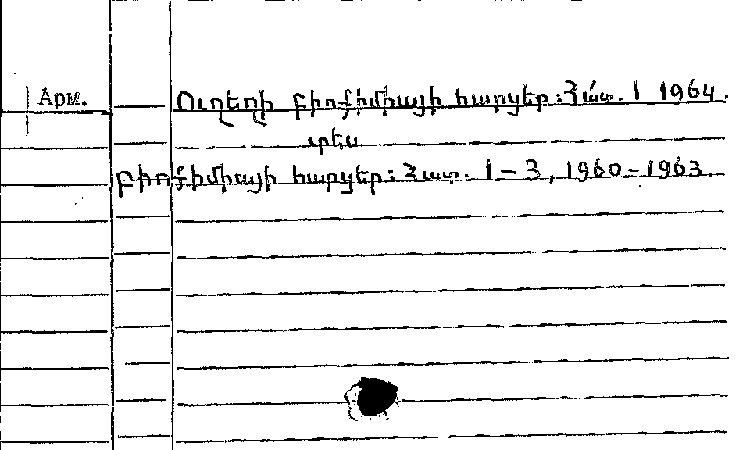 Арм.
Ուղեղի բիոքիմիայի հարցեր: Հատ. I 1964.
տես
բիոքիմիայի հարցեր: Հատ. 1-3, 1960-1963.